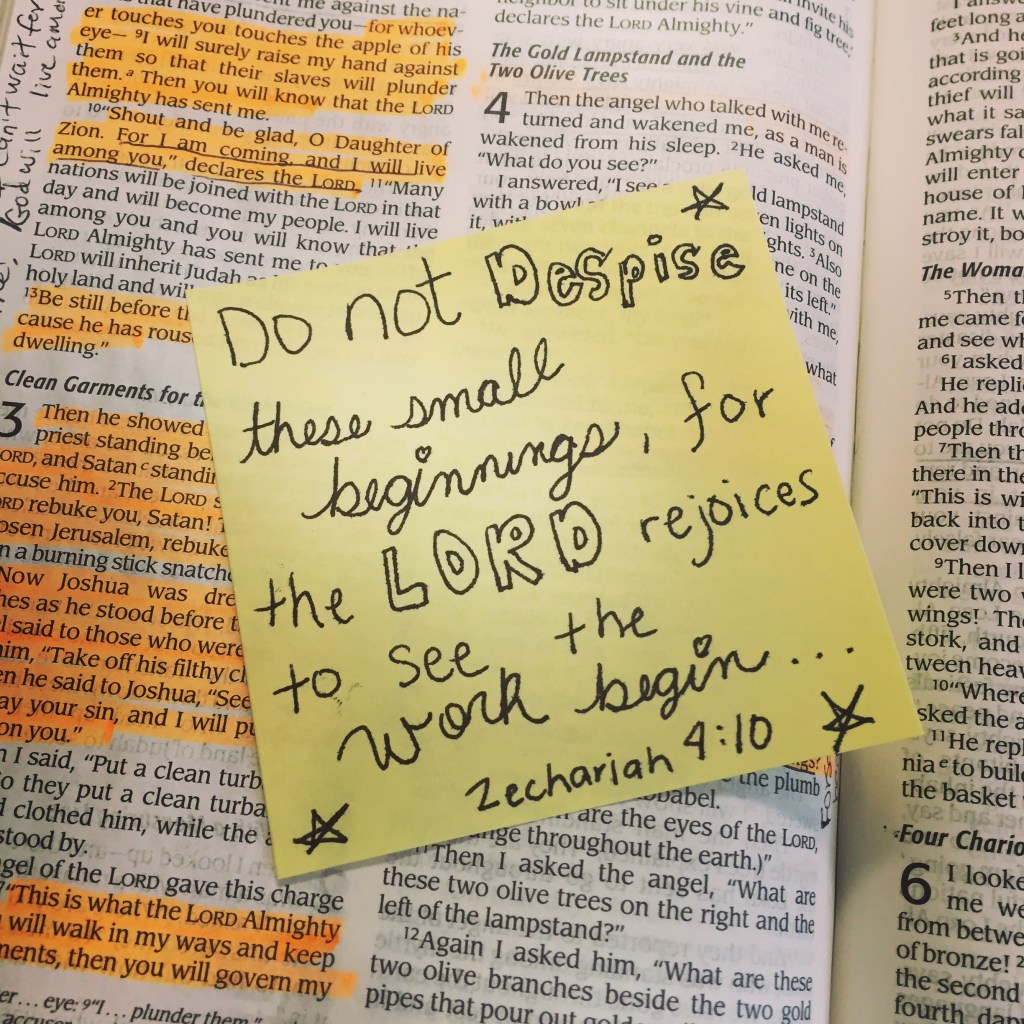 can't wait for
God will live amon
that have plundered you—for whoev-
er touches you touches the apple of his
eye— 9I will surely raise my hand against
them so that their slaves will plunder
them.a Then you will know that the LORD
Almighty has sent me.
10"Shout and be glad, O Daughter of
Zion. For I am coming, and I will live
among you," declares the LORD. 11"Many
nations will be joined with the LORD in that
day and will become my people. I will live
among you and you will know that
LORD Almighty has sent me to
LORD will inherit Judah
holy land and will
13Be still before
cause he has rous
dwelling."
Clean Garments for
3 Then he showed
priest standing be
ORD, and Satanc standin
ccuse him. 2The LORD
ORD rebuke you, Satan!
osen Jerusalem, rebuke
n a burning stick snatche
Now Joshua was dre
hes as he stood before
l said to those who were
him, "Take off his filthy cl
en he said to Joshua, "See
ay your sin, and I will pu
on you."
n I said, "Put a clean turb
o they put a clean turba
d clothed him, while the
stood by.
ngel of the LORD gave this charge
7"This is what the LORD Almighty
will walk in my ways and keep
ments, then you will govern my
er... eye: 9"I... plunder them"
Do not Despise
these small
beginnings, for
the LORD rejoices
to see the
work begin...
Zechariah 4:10
neighbor to sit under his vine and fig tree,
declares the LORD Almighty."
The Gold Lampstand and the
Two Olive Trees
4 Then the angel who talked with me re-
turned and wakened me, as a man is
wakened from his sleep. 2He asked me,
"What do you see?"
I answered, "I see ld lampstand
with a bowl en lights on
it, with ghts. 3Also
ne on the
its left."
with me,
what
the plumb
bbabel.
are the eyes of the LORD,
nge throughout the earth.)"
11Then I asked the angel, "What are
these two olive trees on the right and the
left of the lampstand?"
12Again I asked him, "What are these
two olive branches beside the two gold
pipes that pour out
feet long a
3And he
that is goi
according
thief will
what it sa
swears fal
Almighty
will enter
house of
name. It w
stroy it, bo
The Woma
5Then th
me came f
and see wh
6I asked
He replie
And he ad
people thro
7Then th
there in the
"This is wi
back into t
cover down
9Then I l
were two
wings! The
stork, and
tween heav
10"Where
sked the a
11He repl
niae to buil
the basket
Four Chario
6 I looke
me we
from betwe
of bronze! 2
the second
fourth dap